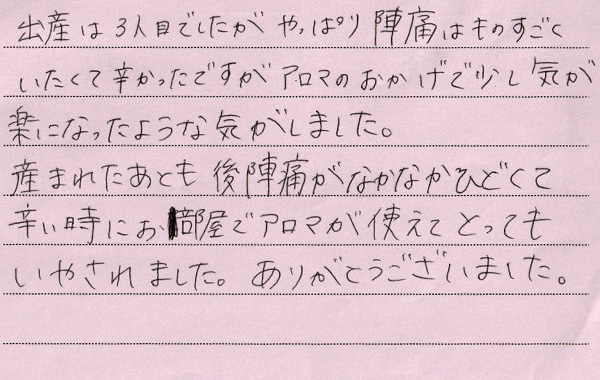 出産は3人目でしたが やっぱり 陣痛はものすごく
いたくて辛かったですが アロマのおかげで少し気が
楽になったような気がしました。
産まれたあとも 後陣痛がなかなかひどくて
辛い時にお部屋でアロマが使えてとっても
いやされました。ありがとうございました。